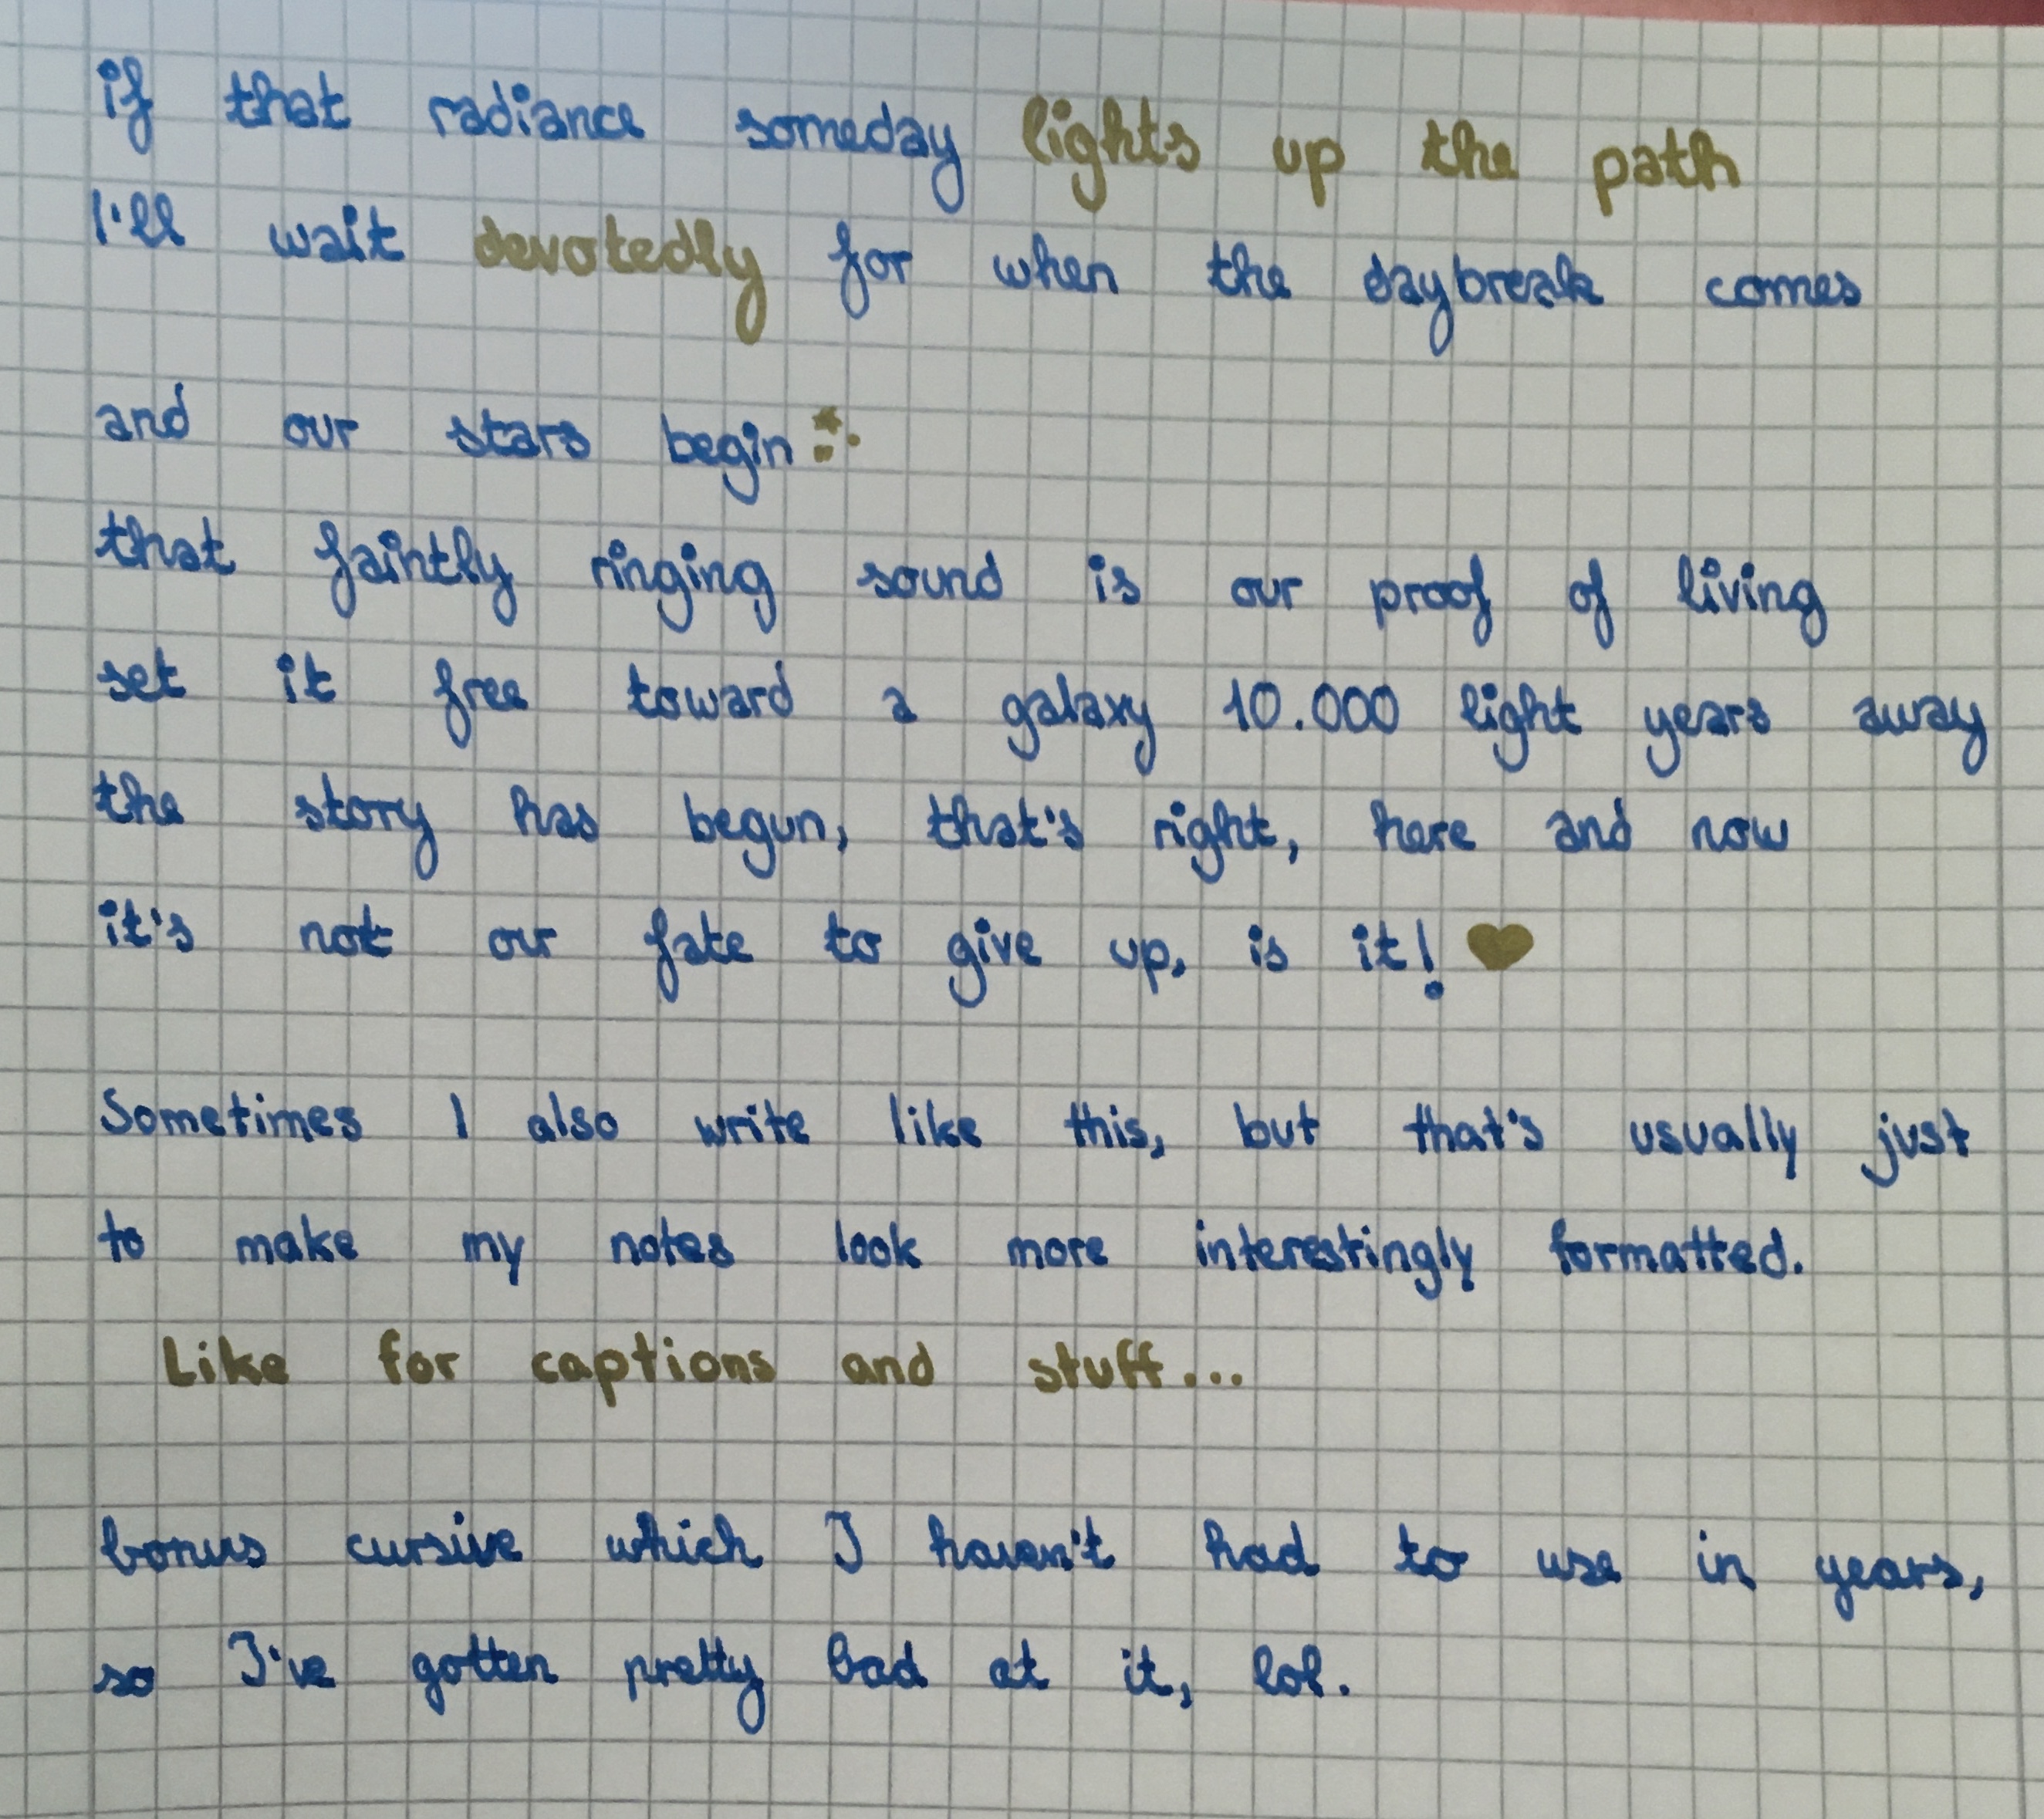 if that radiance someday lights up the path
I'll wait devotedly for when the daybreak comes
and our stars begin
that faintly ringing sound is our proof of living
set it free toward a galaxy 10.000 light years away
the story has begun, that's right, here and now
it's not our fate to give up, is it!
Sometimes I also write like this, but that's usually just
to make my notes look more interestingly formatted.
Like for captions and stuff...
bonus cursive which I haven't had to use in years,
so I've gotten pretty bad at it, lol.